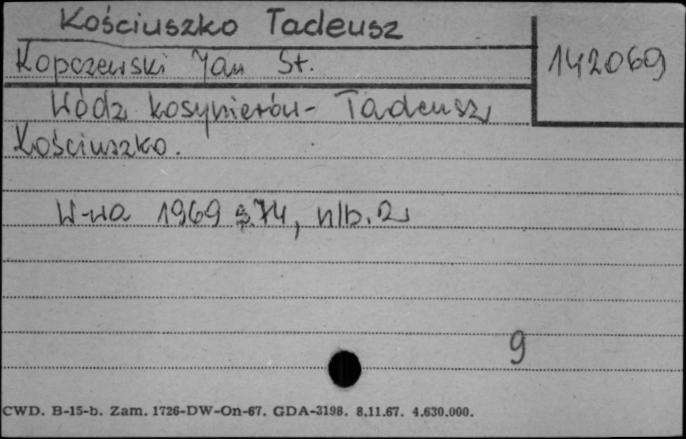 Kościuszko Tadeusz
142069
Kopczewski Jan St.
Wódz kosynierów - Tadeusz
Kościuszko.
W-wa 1969 s.74, nlb. 2
9
CWD. B-15-b. Zam. 1726-DW-On-67. GDA-3198. 8.11.67. 4.630.000.